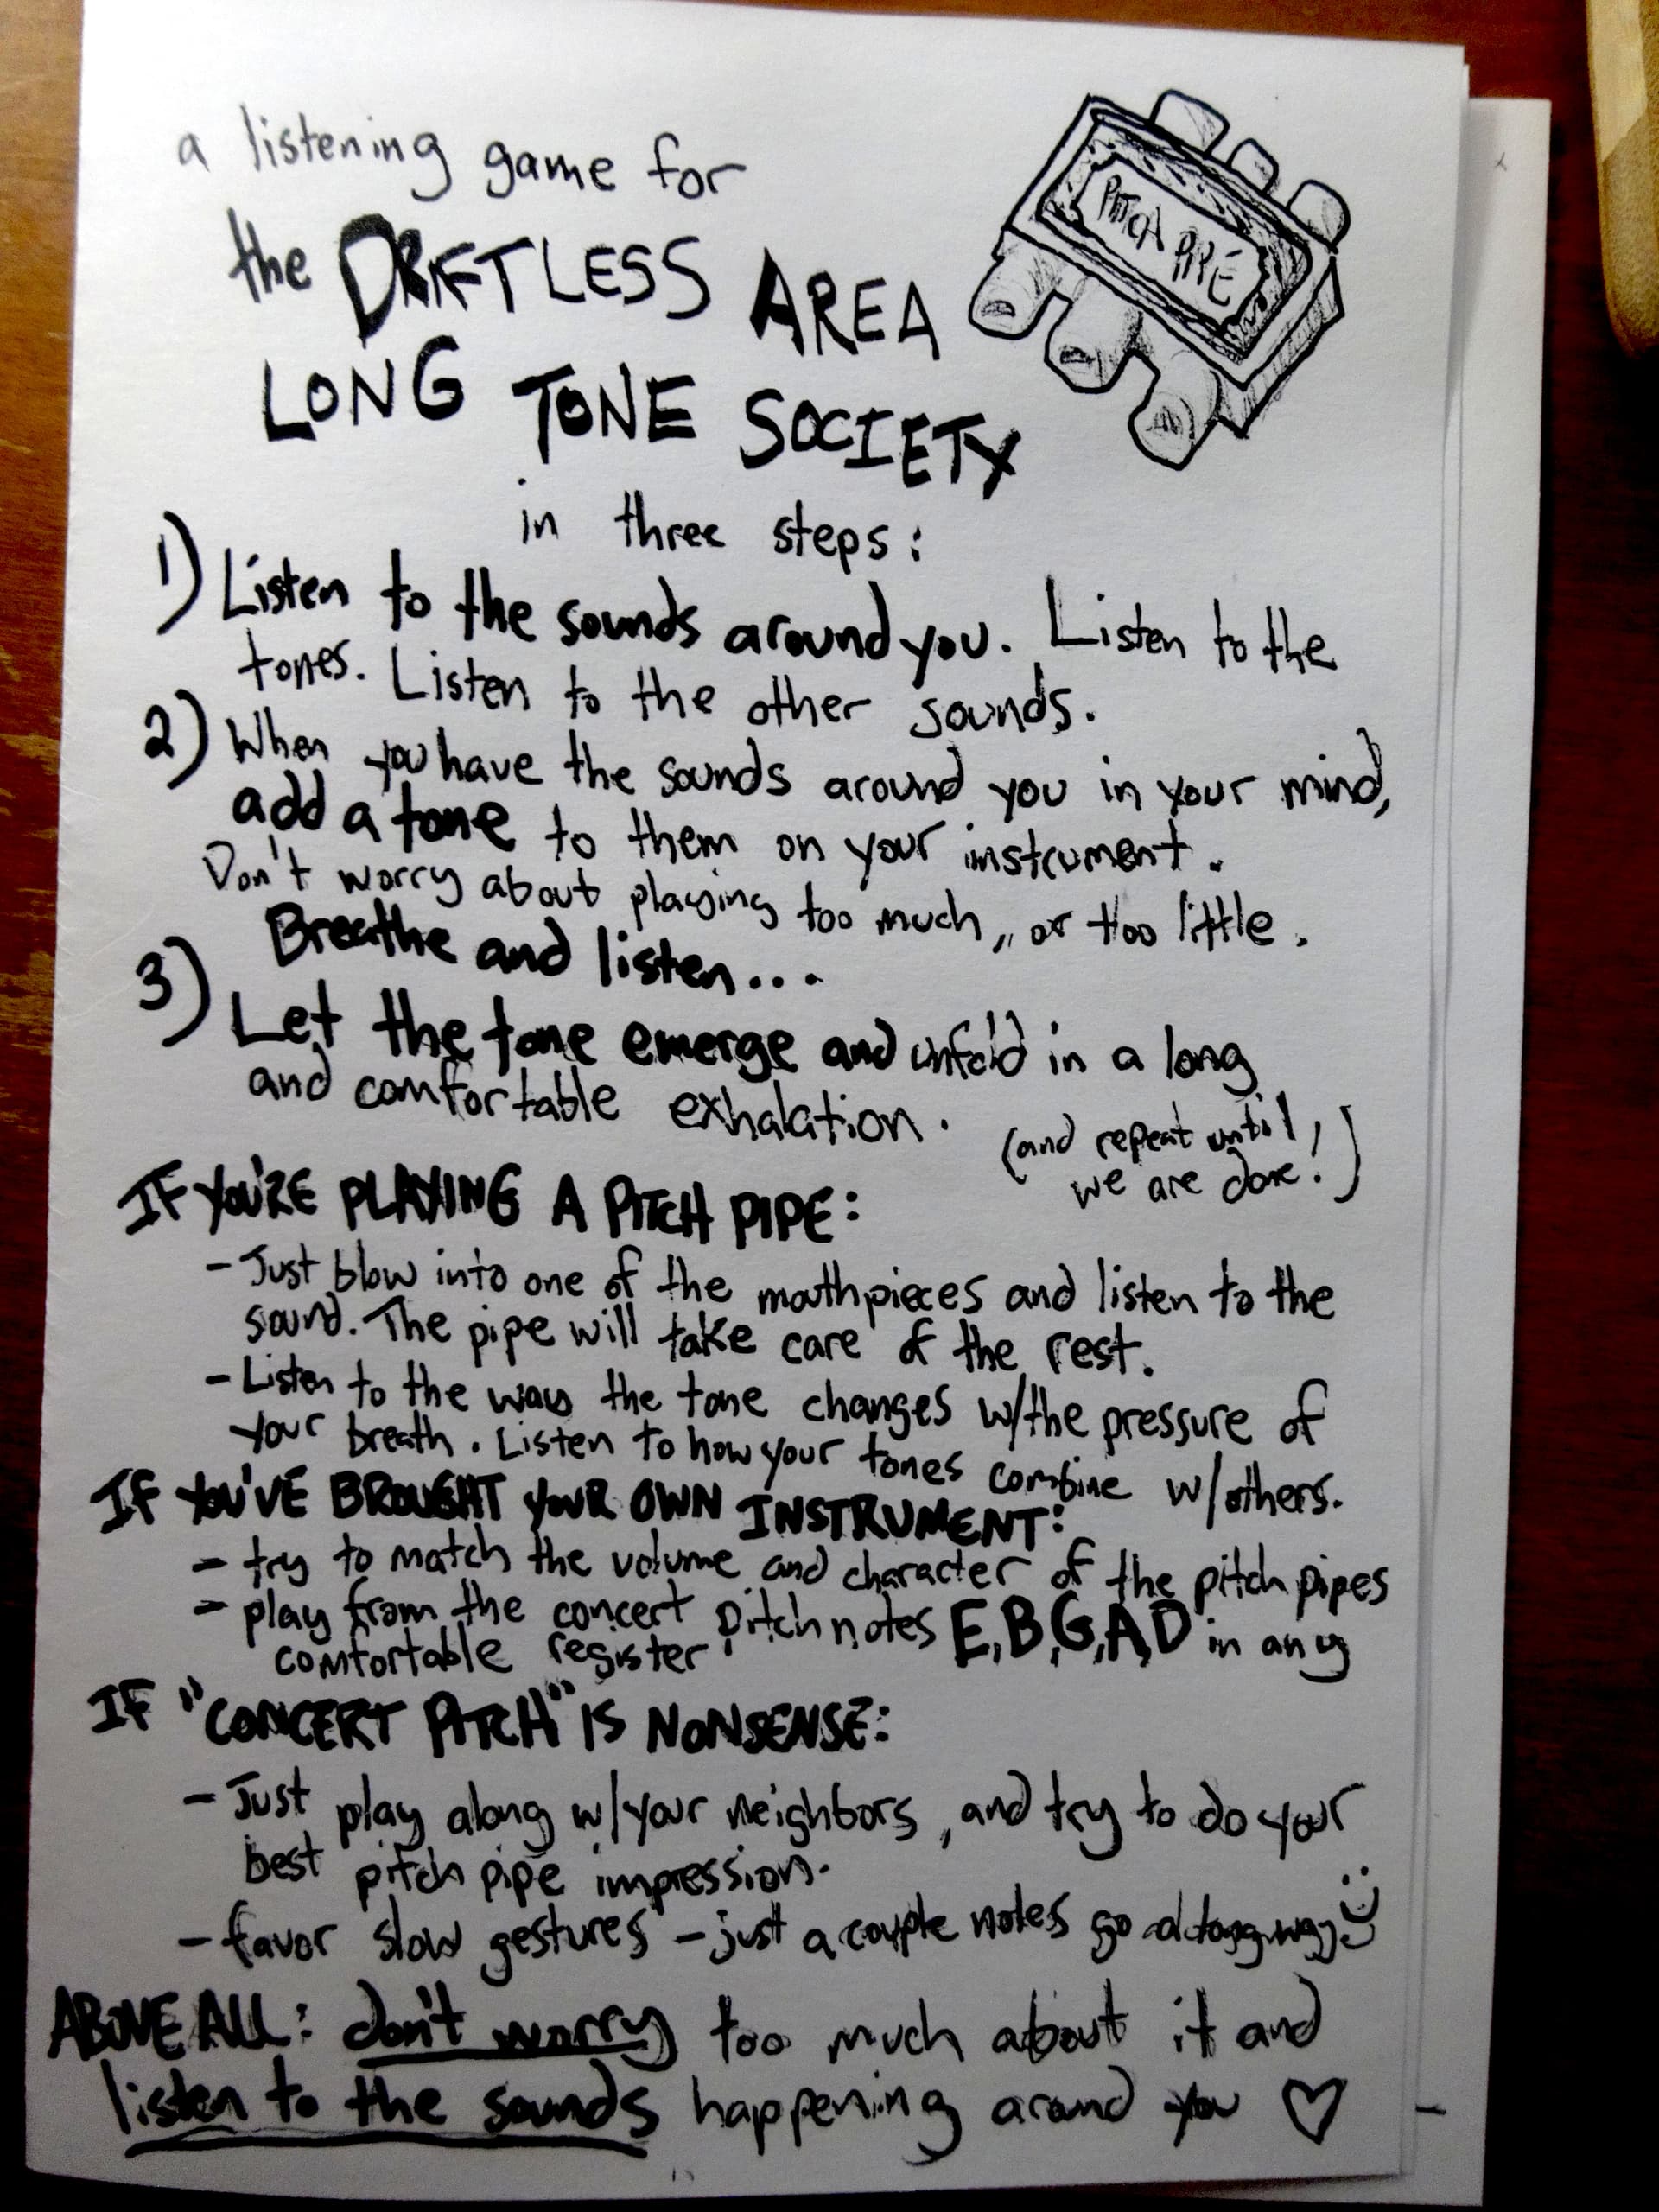 a listening game for
the DRIFTLESS AREA
LONG TONE SOCIETY
PITCH PIPE
in three steps:
1) Listen to the sounds around you. Listen to the
tones. Listen to the other sounds.
2) When you have the sounds around you in your mind,
add a tone to them on your instrument.
Don't worry about playing too much, or too little.
Breathe and listen...
3) Let the tone emerge and unfold in a long
and comfortable exhalation.
(and repeat until
we are done!)
IF YOU'RE PLAYING A PITCH PIPE:
- Just blow into one of the mouthpieces and listen to the
sound. The pipe will take care of the rest.
- Listen to the way the tone changes w/the pressure of
your breath. Listen to how your tones combine w/others.
IF YOU'VE BROUGHT YOUR OWN INSTRUMENT:
- try to match the volume and character of the pitch pipes
- play from the concert pitch notes E, B, G, A, D in any
comfortable register
IF "CONCERT PITCH" IS NONSENSE:
- Just play along w/your neighbors, and try to do your
best pitch pipe impression.
- favor slow gestures - just a couple notes go a long way :)
ABOVE ALL: don't worry too much about it and
listen to the sounds happening around you ♡